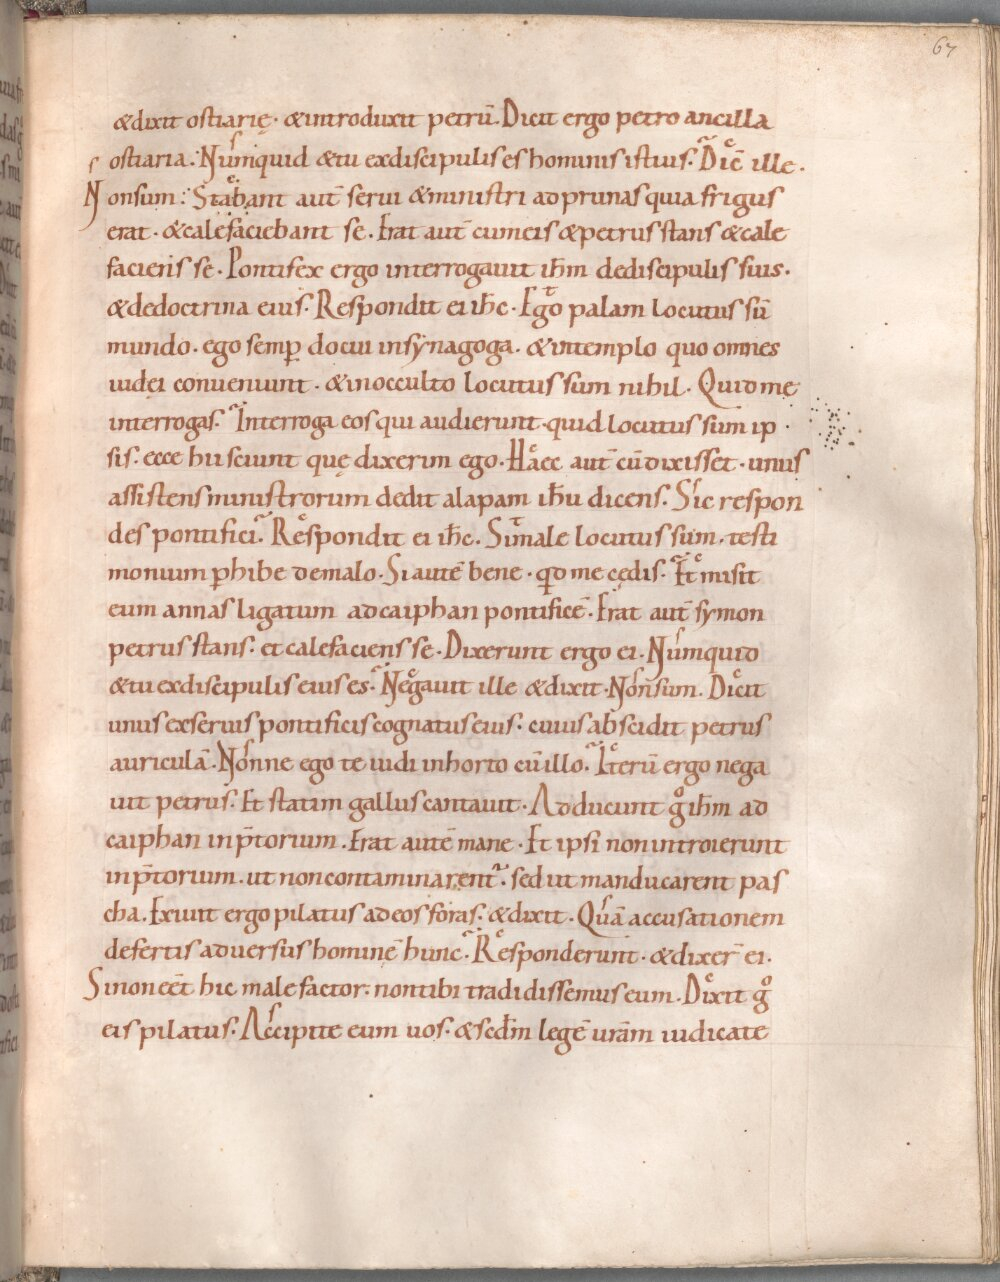 67
&dixit ostiarię · &introduxit petrū. Dicit ergo petro ancilla
ostiaria. Numquid &tu exdiscipulis es hominis istius. Dic̄ ille.
Nonsum. Stabant aut̄ serui &ministri adprunas quia frigus
erat. &calefaciebant se. Erat aut̄ cumeis &petrus stans &cale
faciens se. Pontifex ergo interrogauit ih̄m dediscipulis suis.
&dedoctrina eius. Respondit ei ih̄c. Ego palam locutus sū
mundo. ego semp̄ docui insynagoga. &intemplo quo omnes
iudei conueniunt. &inocculto locutus sum nihil. Quid me
interrogas. Interroga eos qui audierunt quid locutus sum ip
sis. ecce hii sciunt quę dixerim ego. Haec aut̄ cū dixisset. unus
assistens ministrorum dedit alapam ih̄u dicens. Sic respon
des pontifici. Respondit ei ih̄c. Si male locutus sum. testi
monium p̄hibe de malo. Si autē bene. qd̄ me cędis. Et misit
eum annas ligatum adcaiphan pontificē. Erat aut̄ symon
petrus stans. et calefaciens se. Dixerunt ergo ei. Numquid
&tu exdiscipulis eius es. Negauit ille &dixit. Nonsum. Dicit
unus exseruis pontificis cognatus eius. cuius abscidit petrus
auriculā. Nonne ego te uidi inhorto cū illo. Iterū ergo nega
uit petrus. Et statim gallus cantauit. Adducunt gͦ ih̄m ad
caiphan inp̄torium. Erat autē mane. Et ipsi nonintroierunt
inp̄torium. ut noncontaminarent. sed ut manducarent pas
cha. Exiuit ergo pilatus adeos foras. &dixit. Quā accusationem
defertis aduersus hominē hunc. Responderunt. &dixer̄ ei.
Si non eēt hic malefactor. nontibi tradidissemus eum. Dixit gͦ
eis pilatus. Accipite eum uos. &scd̄m legē ur̄am iudicate